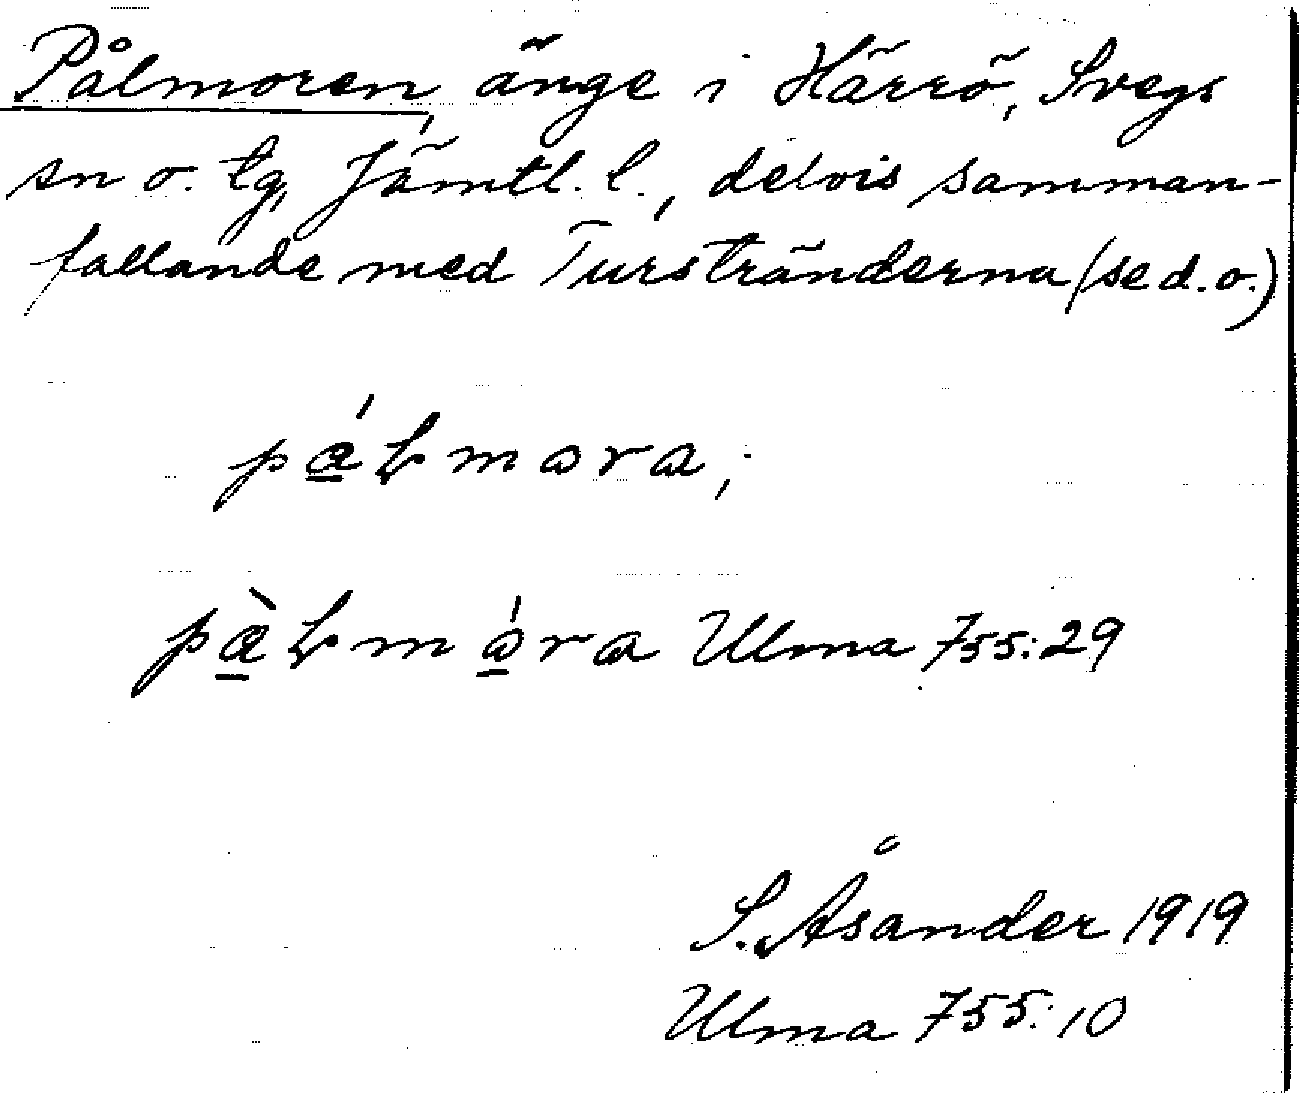 Pålmoren, änge i Härrö, Svegs
sn o. tg, Jämtl. l., delvis samman-
fallande med Turstränderna (se d.o.)
Ulma 755:29
S. Åsander 1919
Ulma 755:10